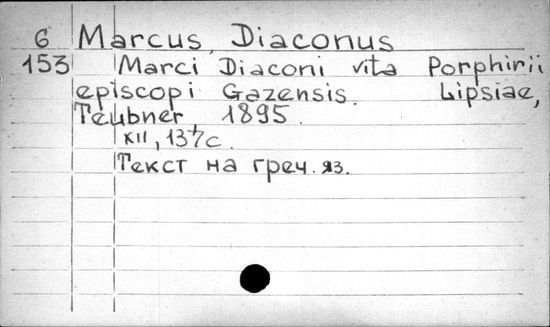 6 Marcus, Diaconus
153 Marci Diaconi vita Porphirii
episcopi Gazensis. Lipsiae,
Teubner, 1895.
XII, 137с.
Текст на греч. яз.